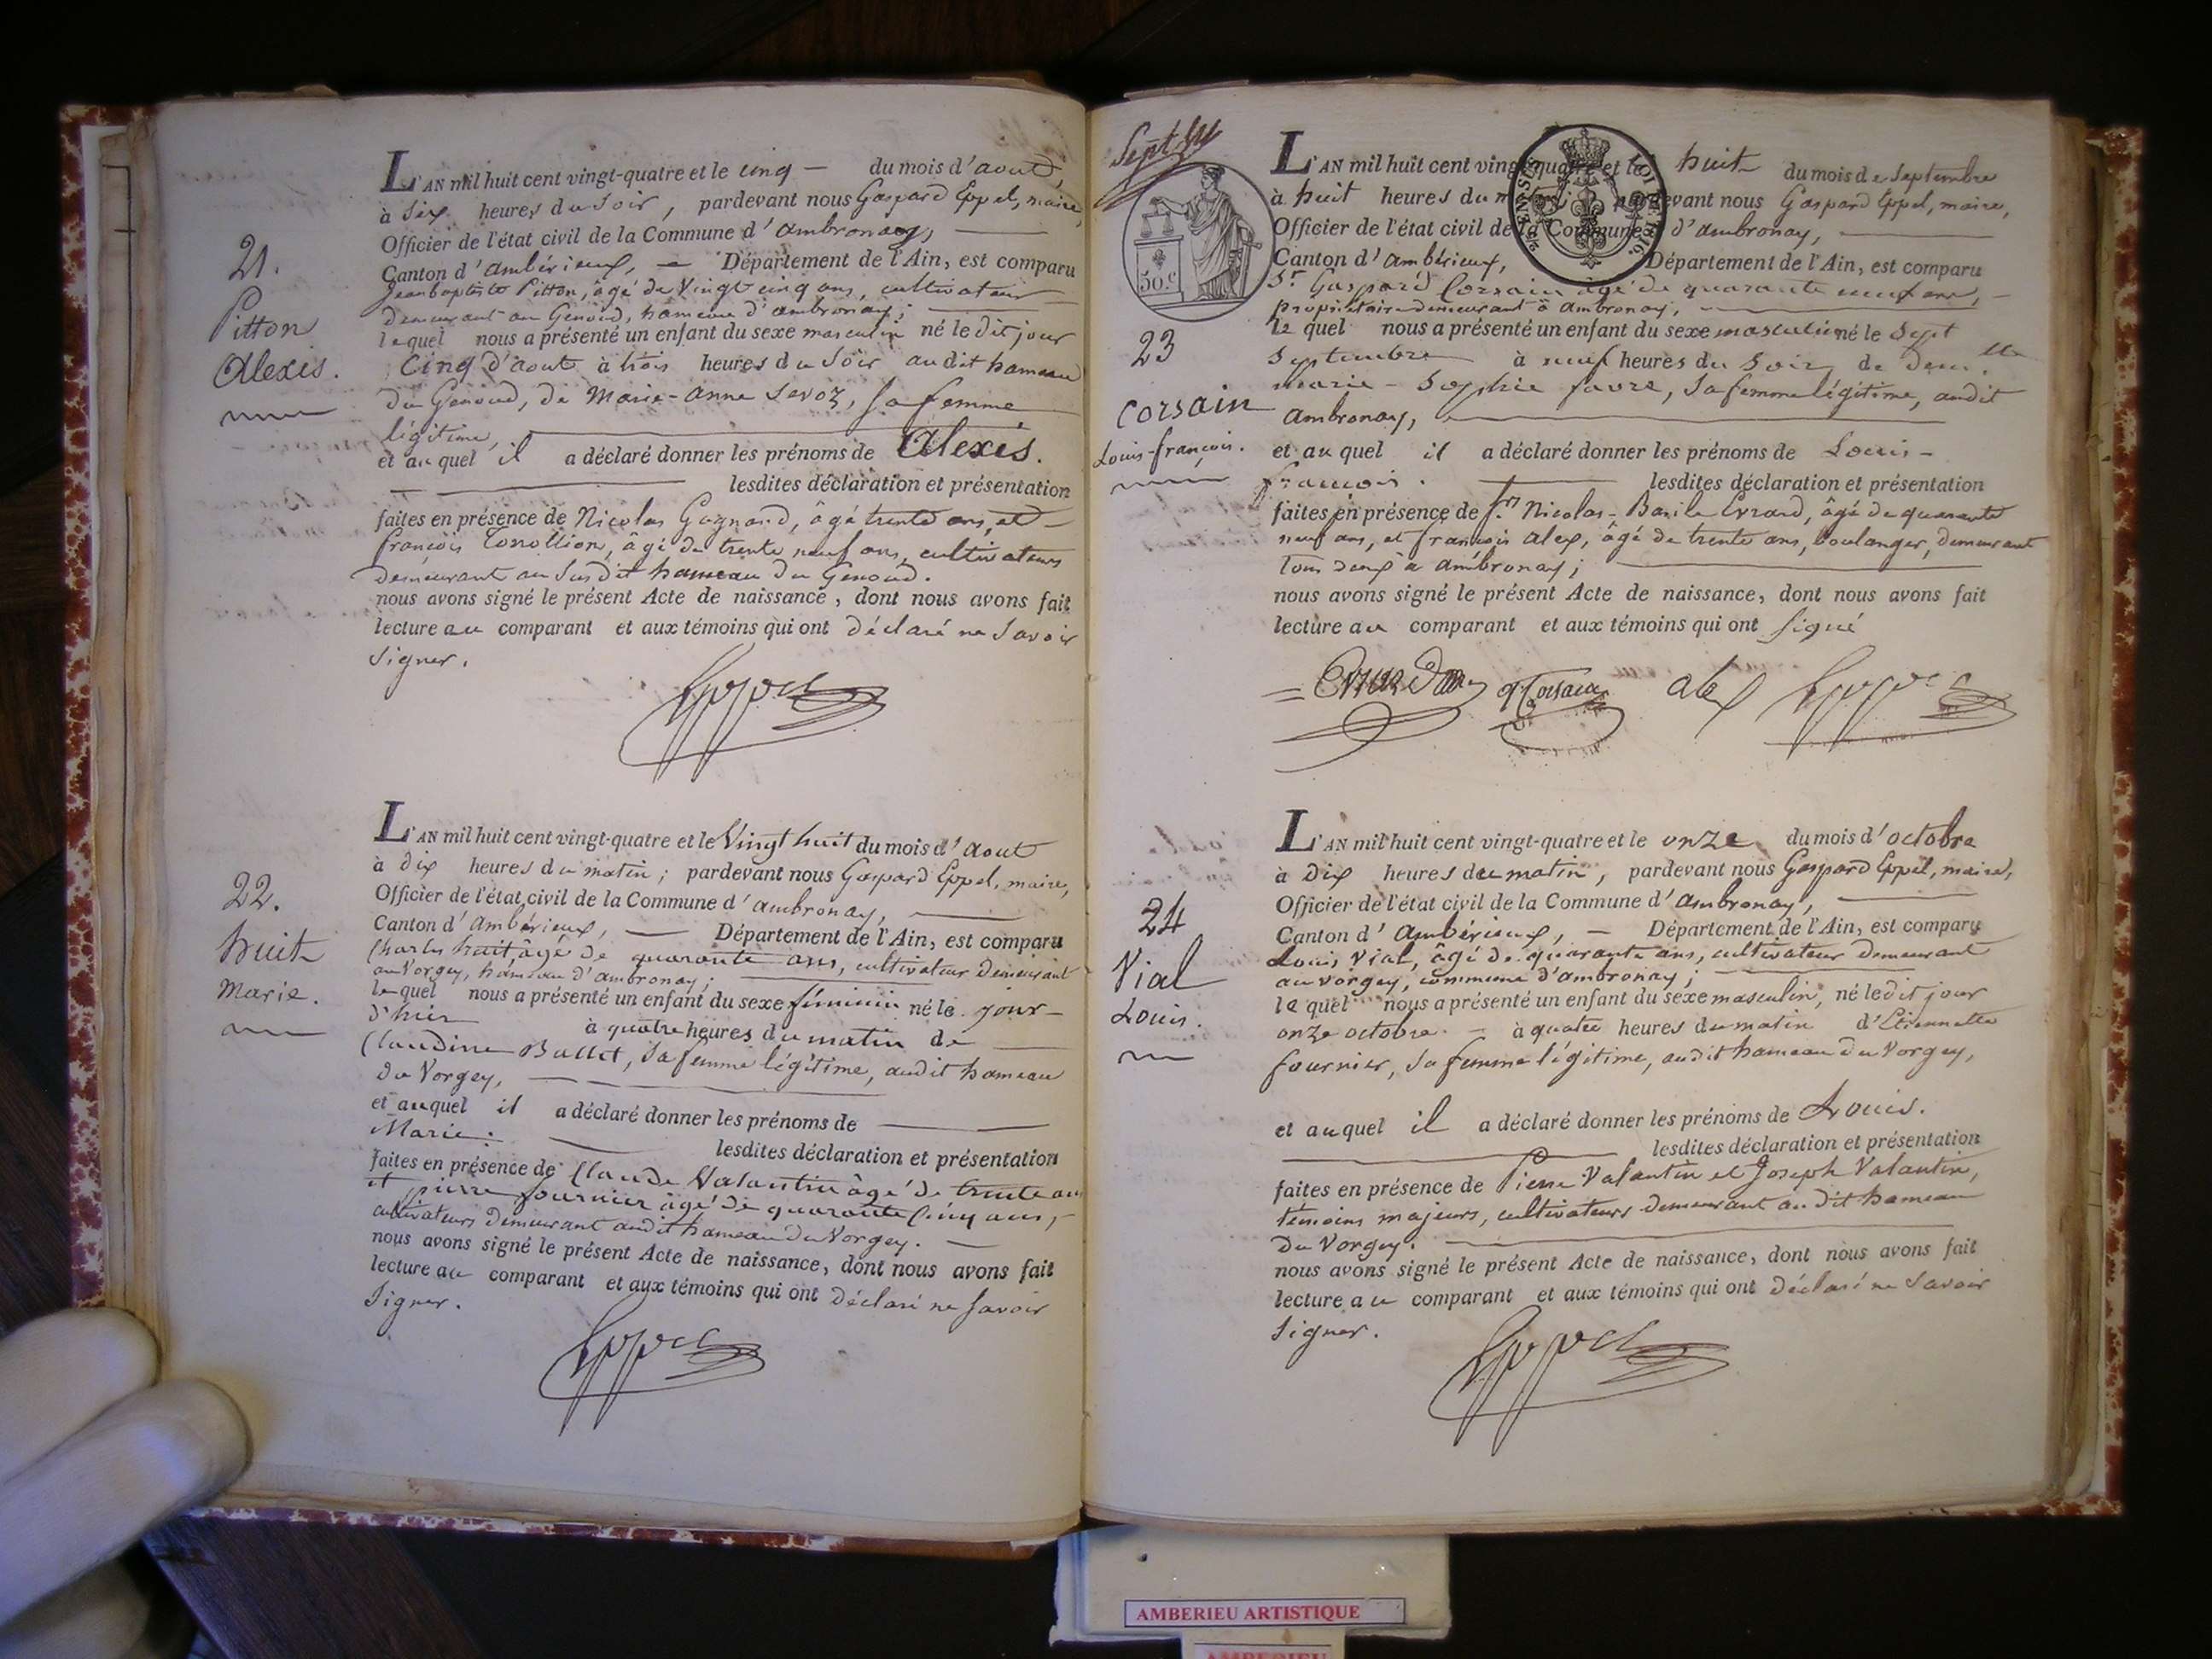 21.
Pitton
Alexis.
L'AN mil huit cent vingt-quatre et le cinq — du mois d'aout,
à six heures du soir, pardevant nous Gaspard Eppel, maire,
Officier de l'état civil de la Commune d'ambronay,
Canton d'ambérieux, — Département de l'Ain, est comparu
Jean baptiste Pitton, âgé de vingt cinq ans, cultivateur
demeurant au Genoud, hameau d'ambronay;
lequel nous a présenté un enfant du sexe masculin né le dit jour
cinq d'aout à trois heures du soir audit hameau
du Genoud, de Marie-anne Savoz, sa femme
légitime,
et auquel il a déclaré donner les prénoms de Alexis.
lesdites déclaration et présentation
faites en présence de Nicolas Gagnard, âgé trente ans, et
françois âgé de trente neuf ans, cultivateurs
demeurant au susdit hameau du Genoud.
nous avons signé le présent Acte de naissance, dont nous avons fait
lecture au comparant et aux témoins qui ont déclaré ne savoir
signer.
Eppel
22.
huit
marie.
L'AN mil huit cent vingt-quatre et le vingt huit du mois d'aout
à dix heures du matin; pardevant nous Gaspard Eppel, maire,
Officier de l'état civil de la Commune d'ambronay,
Canton d'ambérieux, — Département de l'Ain, est comparu
Charles huit, âgé de quarante ans, cultivateur demeurant
au Vorgey, hameau d'ambronay;
lequel nous a présenté un enfant du sexe féminin né le jour
d'hier à quatre heures du matin de
Claudine Ballet, sa femme légitime, audit hameau
du Vorgey,
et auquel il a déclaré donner les prénoms de
Marie.
lesdites déclaration et présentation
faites en présence de Claude Valantin âgé de trente ans
et pierre fournier âgé de quarante cinq ans,
cultivateurs demeurant audit hameau du Vorgey.
nous avons signé le présent Acte de naissance, dont nous avons fait
lecture au comparant et aux témoins qui ont déclaré ne savoir
signer.
Eppel
50 c
23
Corsain
Louis-françois.
L'AN mil huit cent vingt-quatre et le huit du mois de septembre
à huit heures du matin pardevant nous Gaspard Eppel, maire,
Officier de l'état civil de la Commune d'ambronay,
Canton d'ambérieux, Département de l'Ain, est comparu
Sr. Gaspard Corsain âgé de quarante neuf ans,
propriétaire demeurant à ambronay,
lequel nous a présenté un enfant du sexe masculin né le sept
septembre à neuf heures du soir de dem.lle
marie-Sophie favre, sa femme légitime, audit
ambronay,
et auquel il a déclaré donner les prénoms de Louis-
françois.
lesdites déclaration et présentation
faites en présence de Sr. Nicolas-Basile Evrard, âgé de quarante
neuf ans, et françois alex, âgé de trente ans, boulanger, demeurant
tous deux à ambronay;
nous avons signé le présent Acte de naissance, dont nous avons fait
lecture au comparant et aux témoins qui ont signé
Evrard Corsain alex Eppel
24
Vial
Louis.
L'AN mil huit cent vingt-quatre et le onze du mois d'octobre
à dix heures du matin, pardevant nous Gaspard Eppel, maire,
Officier de l'état civil de la Commune d'ambronay,
Canton d'ambérieux, — Département de l'Ain, est comparu
Louis Vial, âgé de quarante ans, cultivateur demeurant
au vorgey, commune d'ambronay;
lequel nous a présenté un enfant du sexe masculin, né le dit jour
onze octobre. — à quatre heures du matin d'Etiennette
fournier, sa femme légitime, audit hameau du Vorgey,
et auquel il a déclaré donner les prénoms de Louis.
lesdites déclaration et présentation
faites en présence de Pierre Valantin et Joseph Valantin,
témoins majeurs, cultivateurs demeurant audit hameau
du Vorgey.
nous avons signé le présent Acte de naissance, dont nous avons fait
lecture au comparant et aux témoins qui ont déclaré ne savoir
signer.
Eppel
AMBERIEU ARTISTIQUE
AMBERIEU